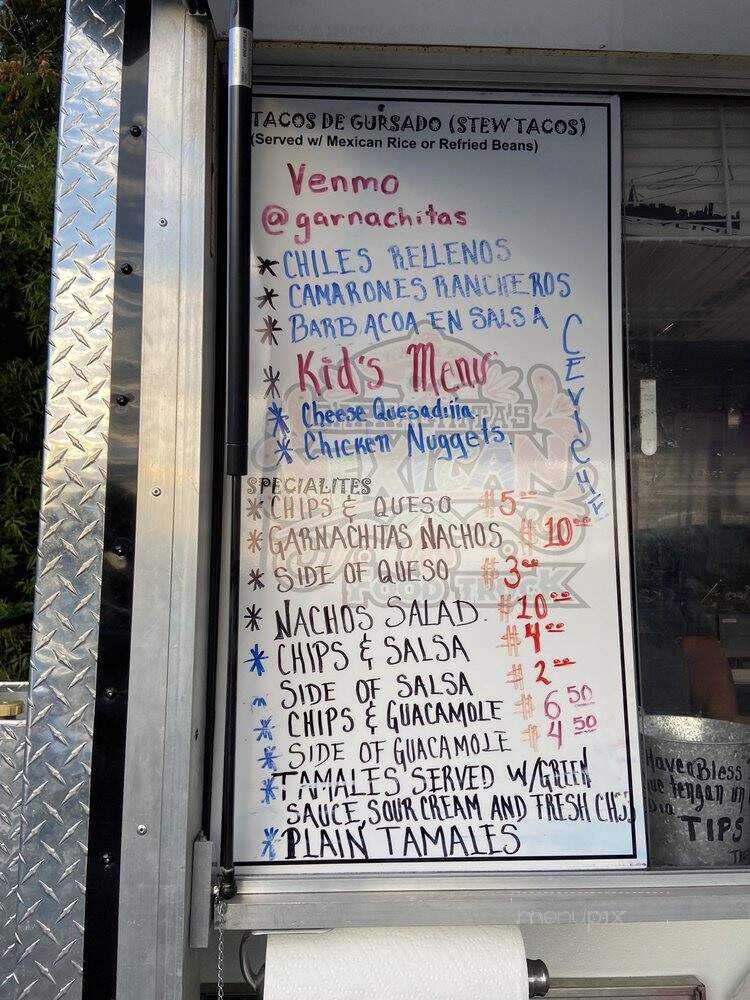 TACOS DE GURSADO (STEW TACOS)
(Served w/ Mexican Rice or Refried Beans)
Venmo
@garnachitas
* CHILES RELLENOS
* CAMARONES RANCHEROS
* BARBACOA EN SALSA
CEVICHE
* Kid's Menu
* Cheese Quesadilla
* Chicken Nuggets.
MEXICAN
FOOD TRUCK
SPECIALITES
* CHIPS & QUESO $5.00
* GARNACHITAS NACHOS $10.00
* SIDE OF QUESO $3.00
* NACHOS SALAD. $10.00
* CHIPS & SALSA $4.00
SIDE OF SALSA $2.00
* CHIPS & GUACAMOLE $6 50
* SIDE OF GUACAMOLE $4 50
* TAMALES SERVED W/GREEN
SAUCE, SOUR CREAM AND FRESH CHS
* PLAIN TAMALES
Have a Bless
que tengan un
Dia
TIPS
menupix